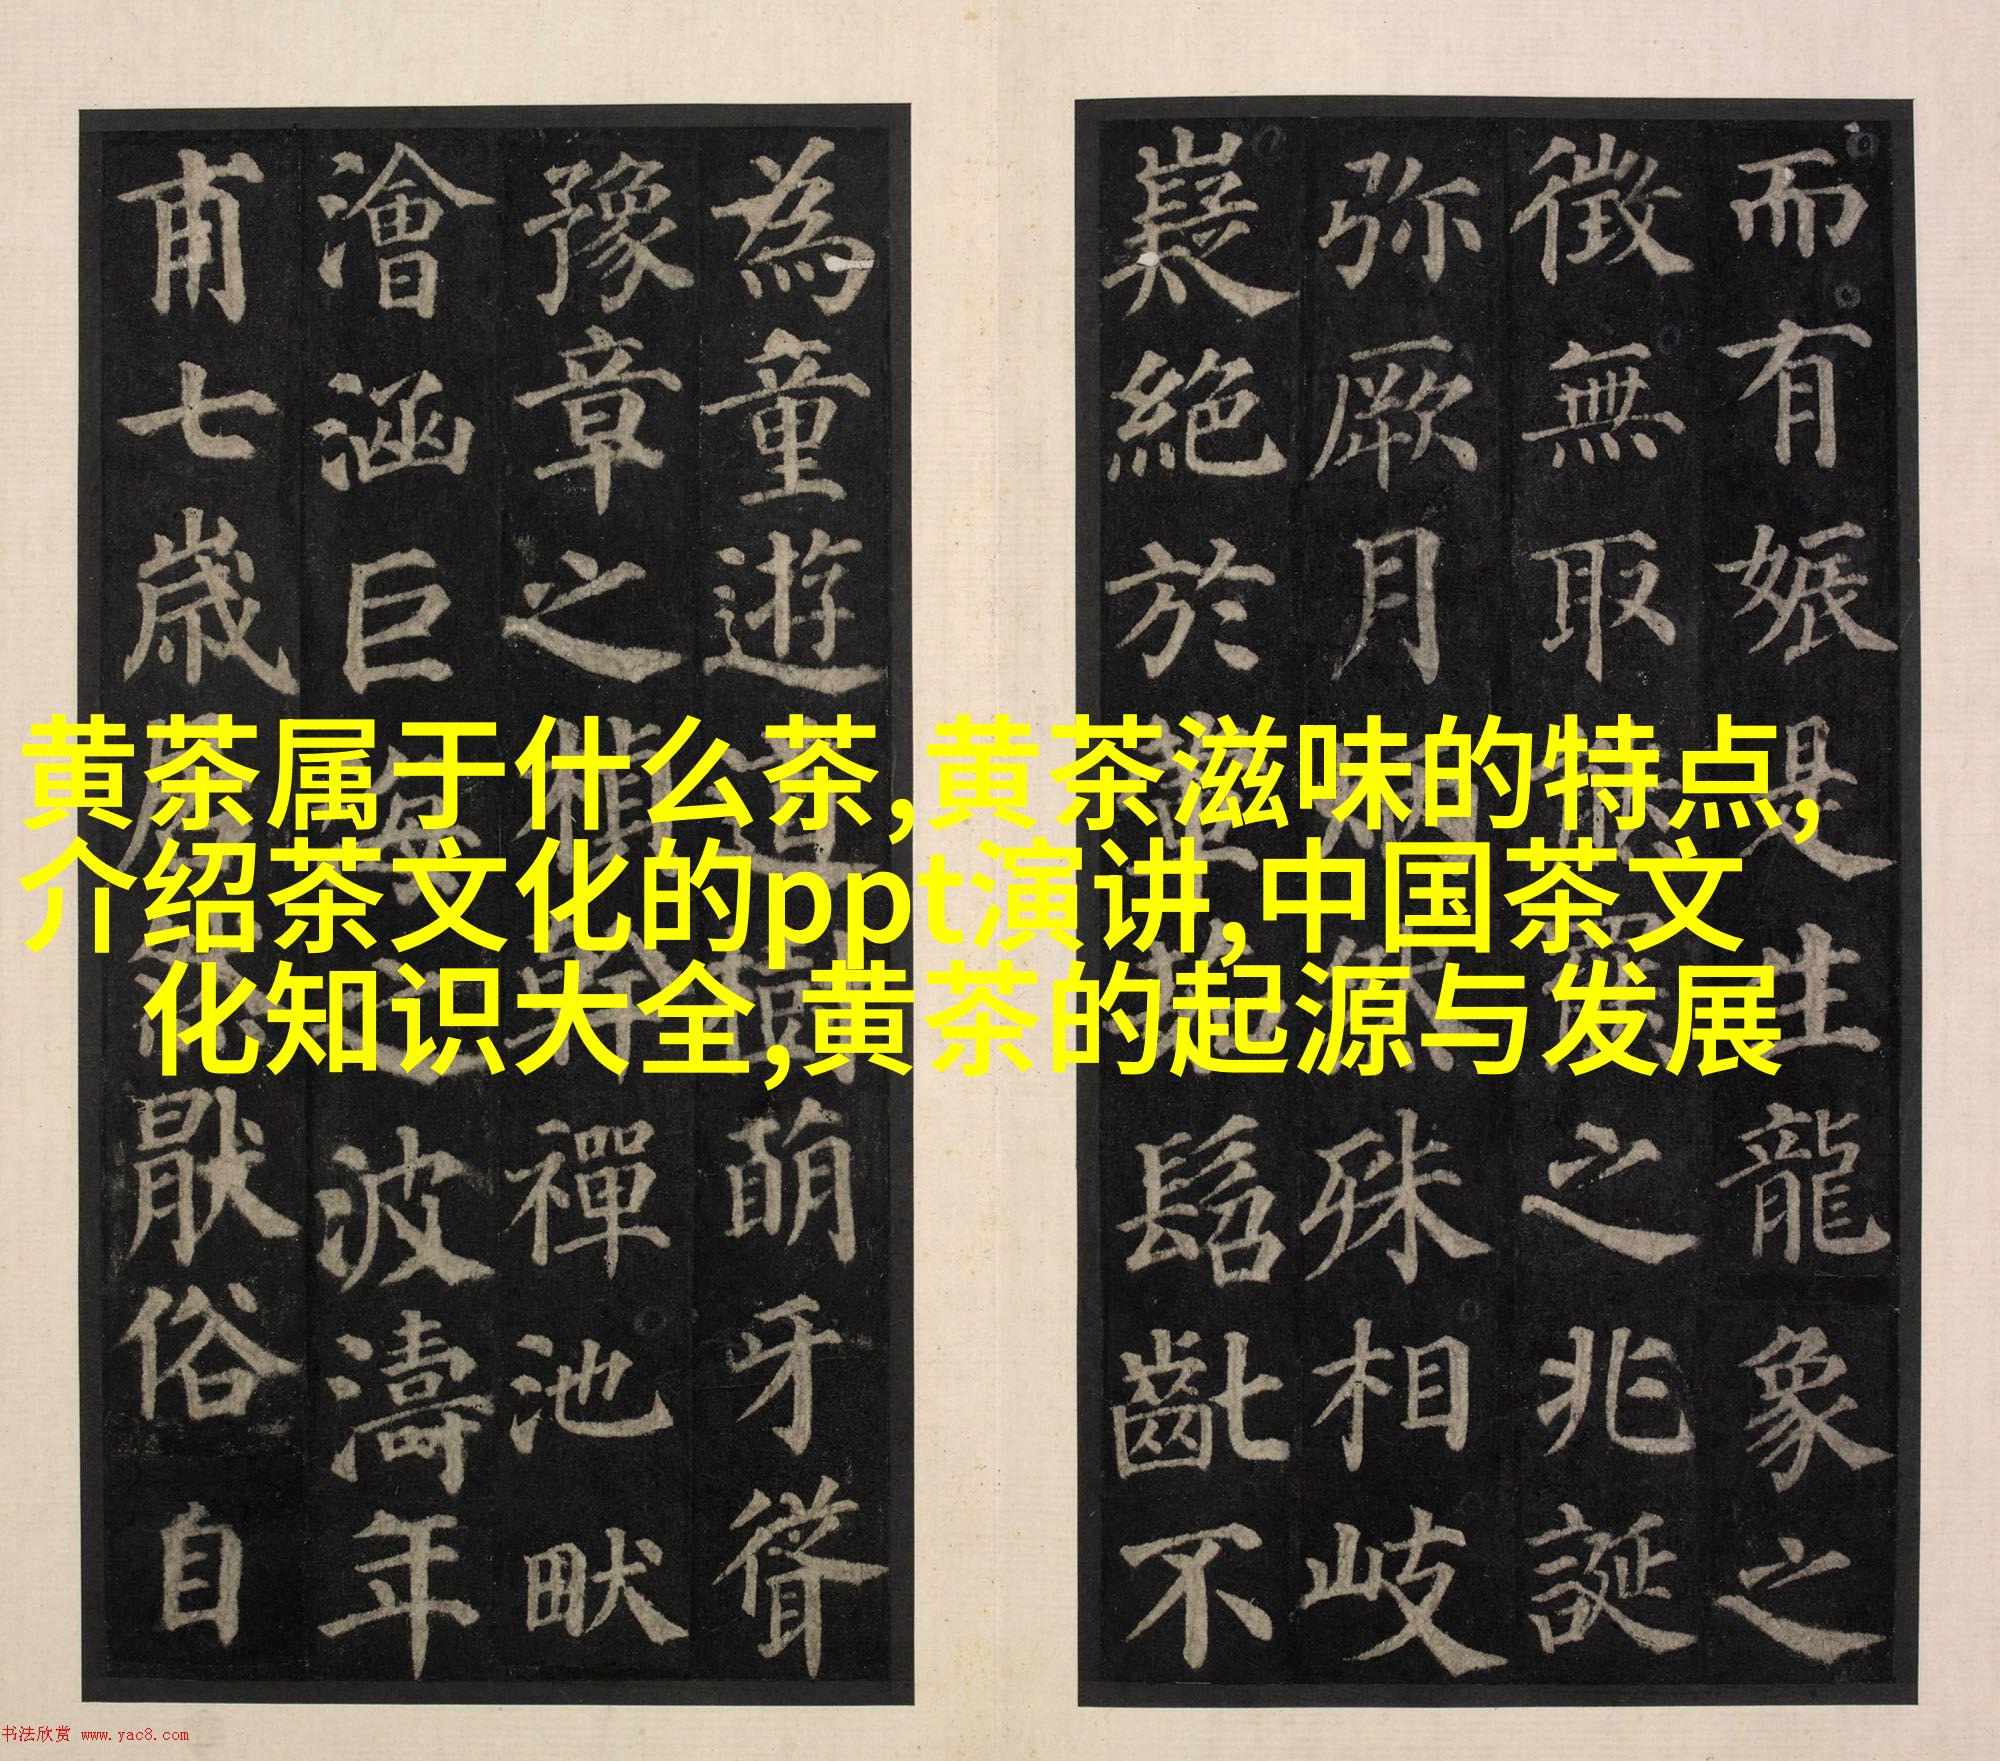 而有娠是生龍象之
徵無取熊羆之兆誕
弥厥月炳然殊相岐
嶷絶於蓮葩髫齔不
為童遊道樹萌牙聳
豫章之楨幹禪池畎
澮涵巨海之波濤年
甫七歲居然厭俗自
黄茶属于什么茶,黄茶滋味的特点,
介绍茶文化的ppt演讲,中国茶文
化知识大全,黄茶的起源与发展
书法欣赏 www.yac8.com